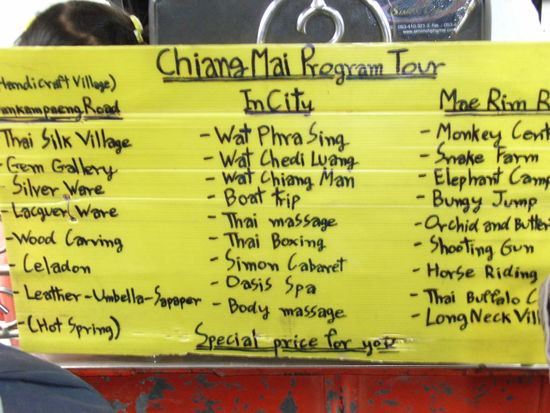 Chiang Mai Program Tour
Handicraft Village)
Road
Thai Silk Village
- Gem Gallery
- Silver Ware
- Lacquer Ware
- Wood Carving
- Celadon
- Leather-Umbella-Sapaper
- (Hot Spring)
In City
- Wat Phra Sing
- Wat Chedi Luang
- Wat Chiang Man
- Boat trip
- Thai massage
- Thai Boxing
- Simon Cabaret
- Oasis Spa
- Body massage
Mae Rim R
- Monkey Cent
- Snake Farm
- Elephant Camp
- Bungy Jump
- Orchid and Butter
- Shooting Gun
- Horse Riding
- Thai Buffalo C
- Long Neck Vill
Special price for you